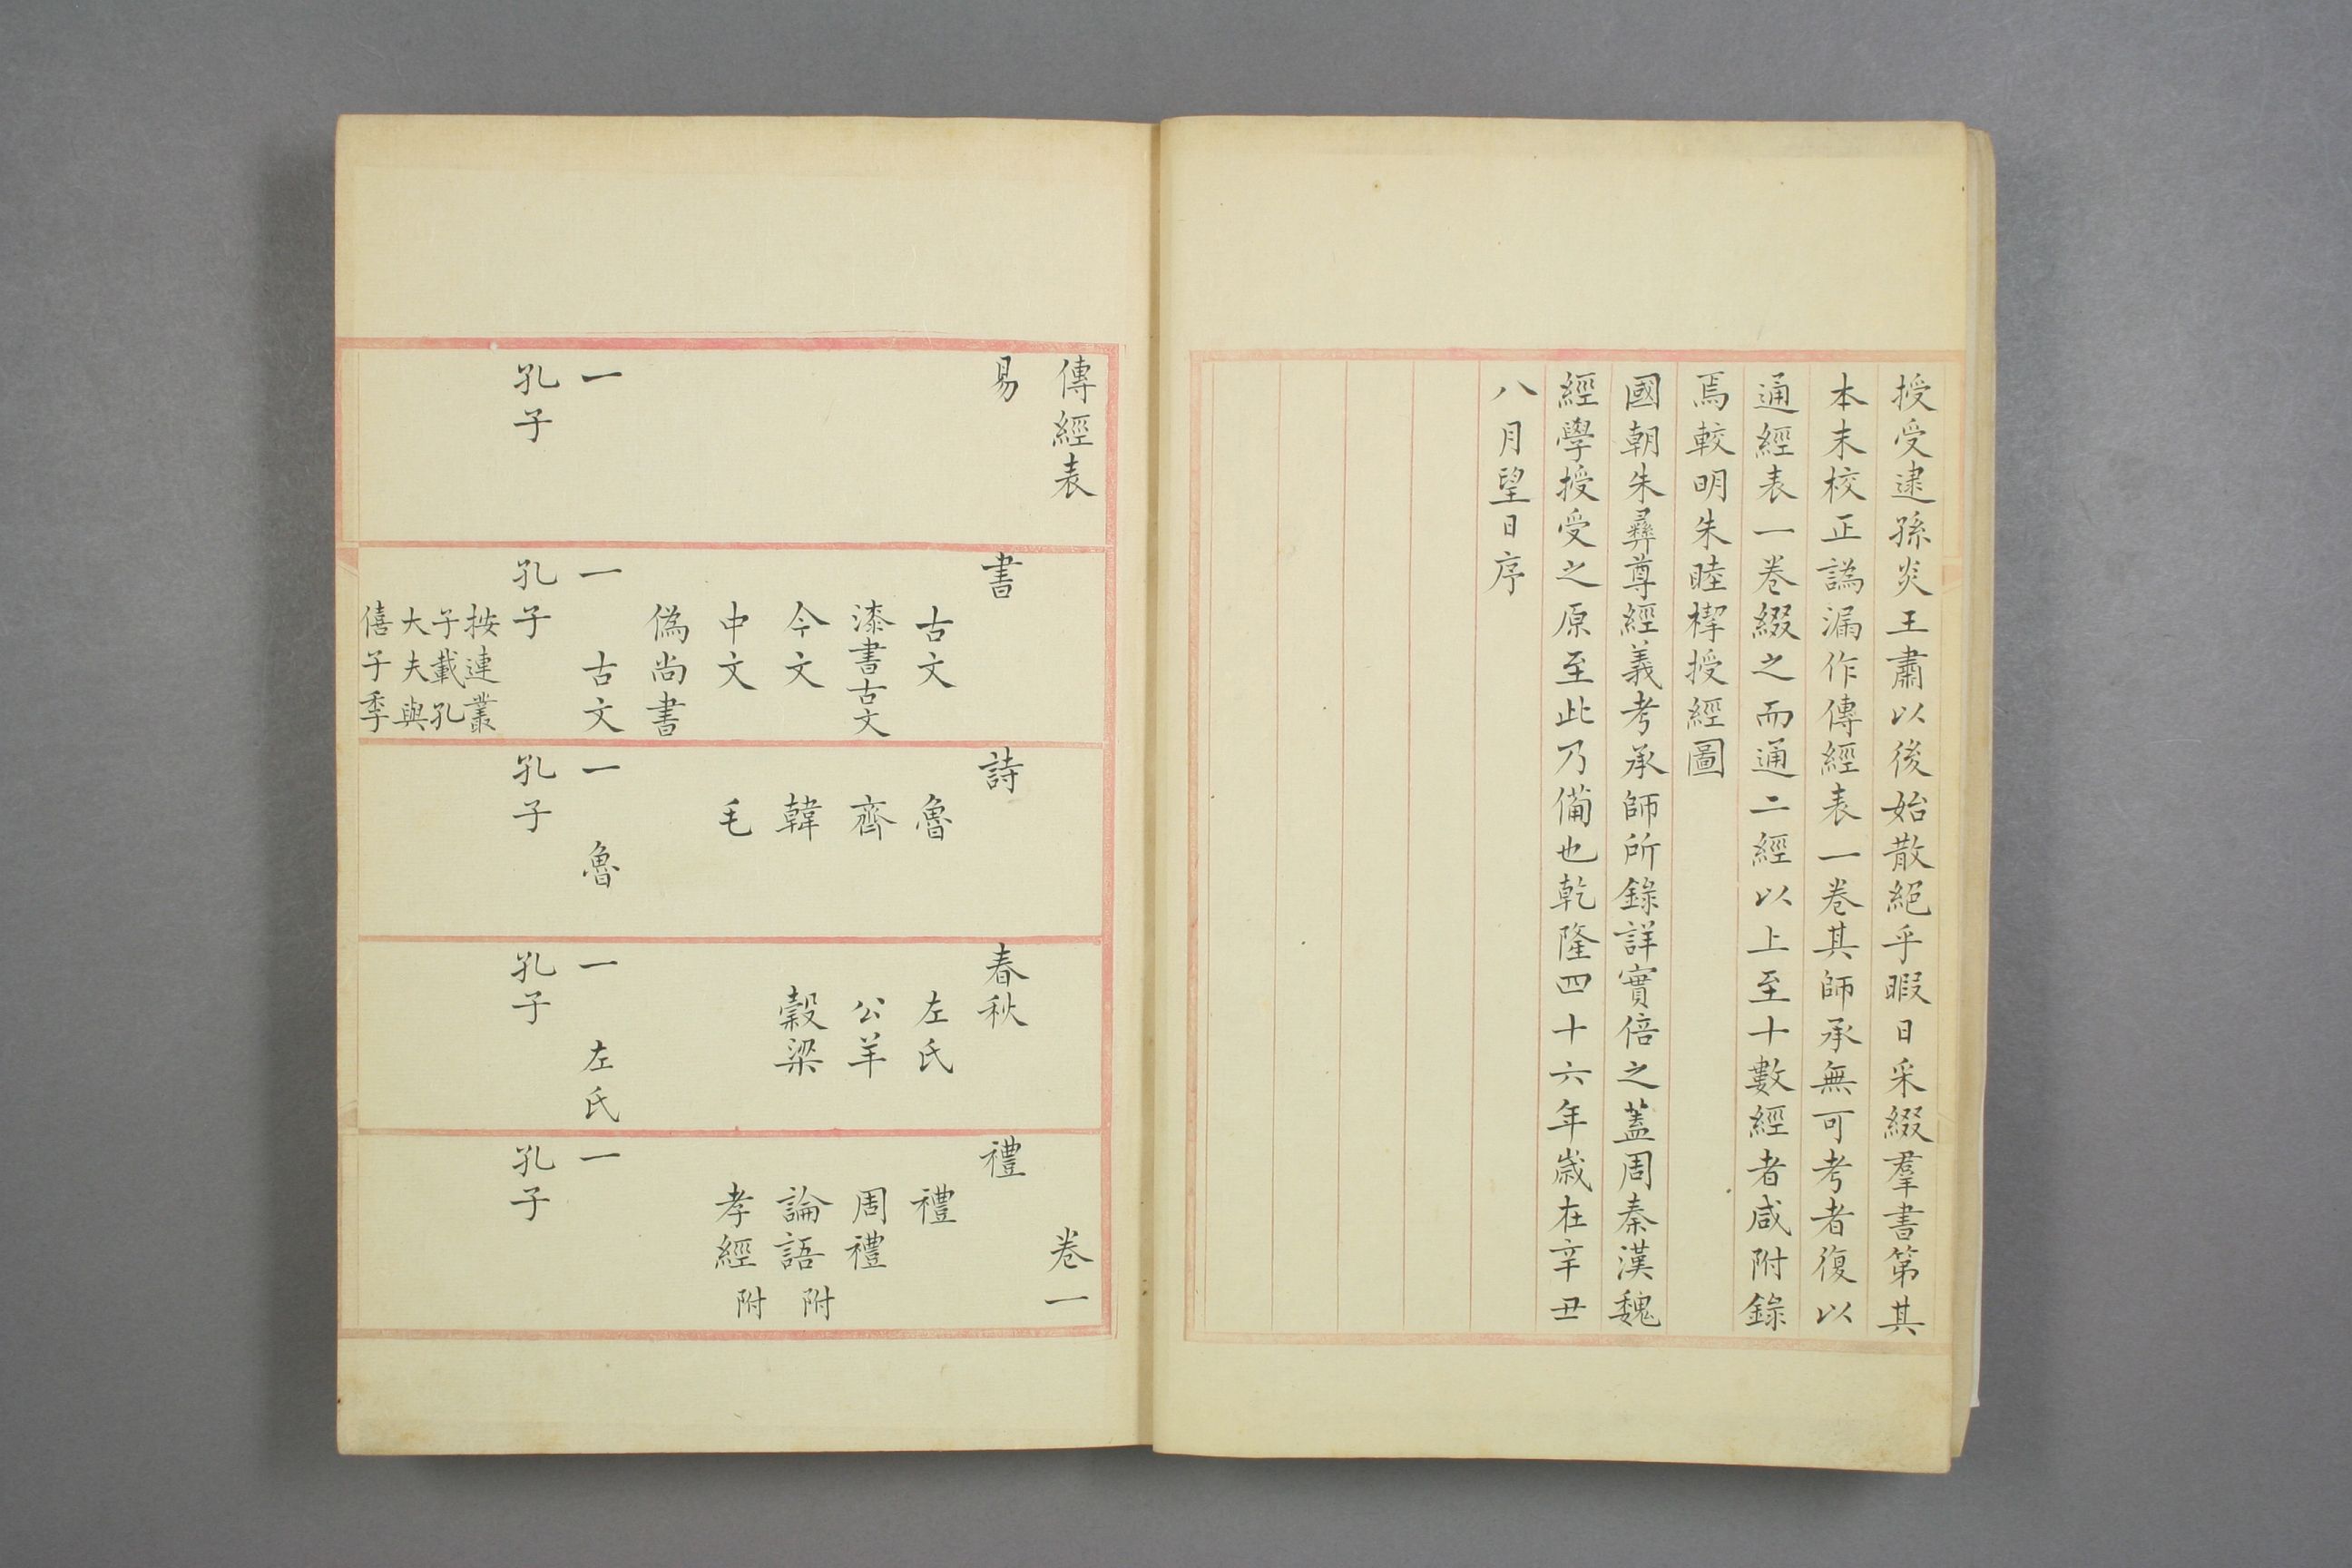 授受逮孫炎王肅以後始散絕乎暇日采綴羣書第其
本末校正譌漏作傳經表一卷其師承無可考者復以
通經表一卷綴之而通二經以上至十數經者咸附錄
焉較明朱睦㮮授經圖
國朝朱彝尊經義考承師所錄詳實倍之蓋周秦漢魏
經學授受之原至此乃備也乾隆四十六年歲在辛丑
八月望日序
傳經表 卷一
易
一
孔子
書
古文
漆書古文
今文
中文
偽尚書
一 古文
孔子
按連叢
子載孔
大夫與
僖子季
詩
魯
齊
韓
毛
一 魯
孔子
春秋
左氏
公羊
穀梁
一 左氏
孔子
禮
禮
周禮
論語附
孝經附
一
孔子